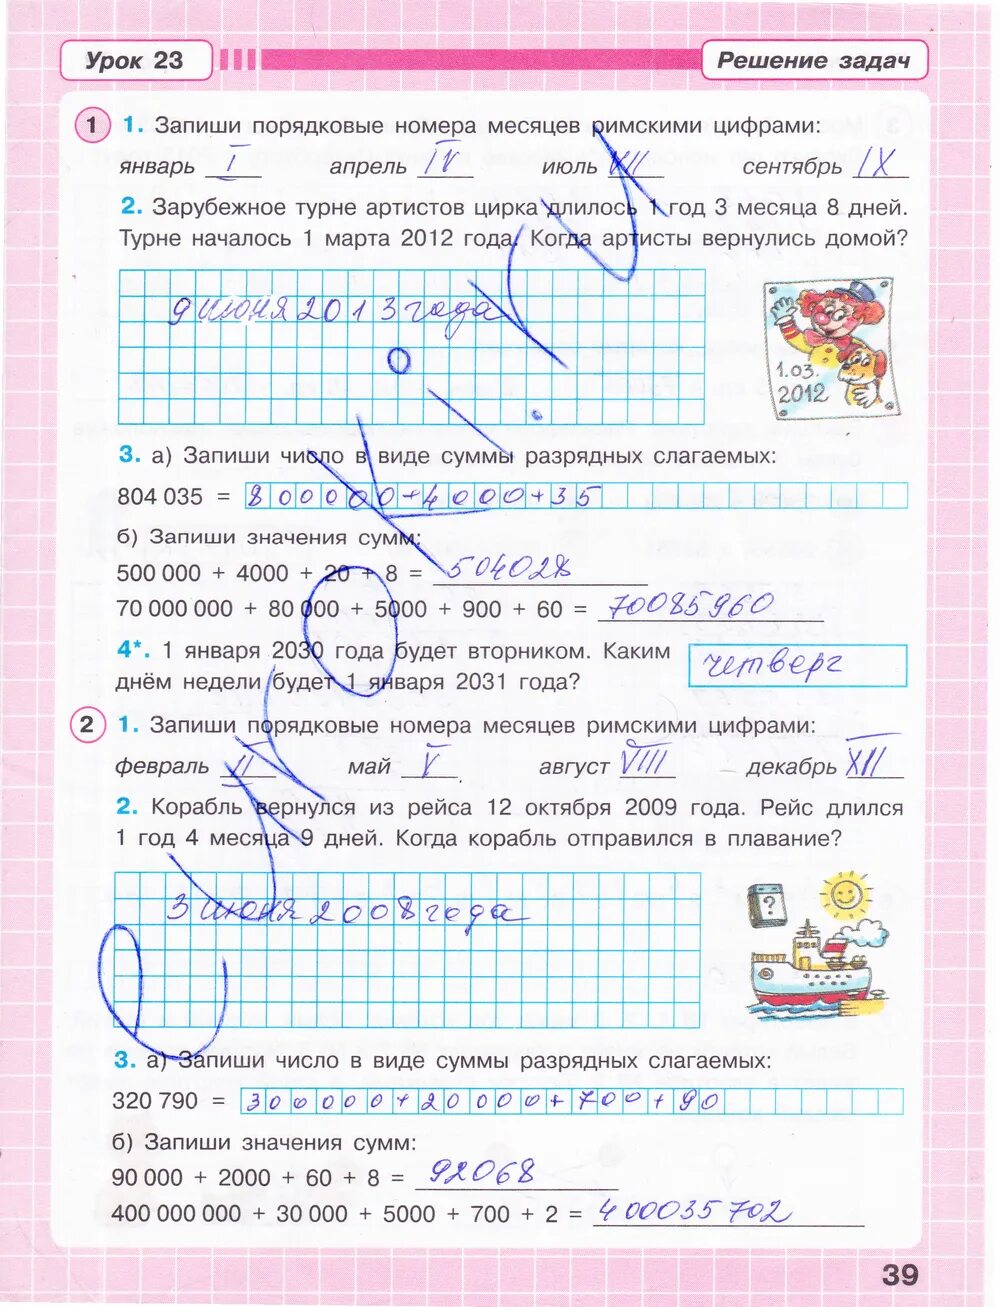 Урок 23 Решение задач
1 1. Запиши порядковые номера месяцев римскими цифрами:
январь I апрель IV июль VII сентябрь IX
2. Зарубежное турне артистов цирка длилось 1 год 3 месяца 8 дней.
Турне началось 1 марта 2012 года. Когда артисты вернулись домой?
9 июня 2013 года
1.03.
2012
3. а) Запиши число в виде суммы разрядных слагаемых:
804 035 = 800000+4000+35
б) Запиши значения сумм:
500 000 + 4000 + 20 + 8 = 504028
70 000 000 + 80 000 + 5000 + 900 + 60 = 70085960
4*. 1 января 2030 года будет вторником. Каким
днём недели будет 1 января 2031 года?
четверг
2 1. Запиши порядковые номера месяцев римскими цифрами:
февраль II май V август VIII декабрь XII
2. Корабль вернулся из рейса 12 октября 2009 года. Рейс длился
1 год 4 месяца 9 дней. Когда корабль отправился в плавание?
3 июня 2008 года
?
3. а) Запиши число в виде суммы разрядных слагаемых:
320 790 = 300000+20000+700+90
б) Запиши значения сумм:
90 000 + 2000 + 60 + 8 = 92068
400 000 000 + 30 000 + 5000 + 700 + 2 = 400035702
39